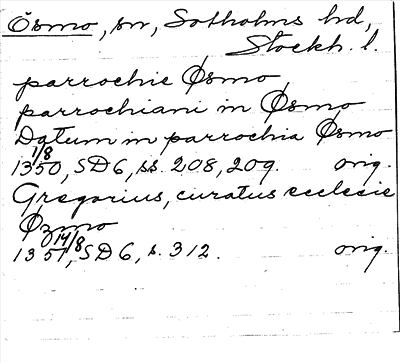 Ösmo, sn, Sotholms hd,
Stockh. l.
parrochie Øsmo
parrochiani in Øsmo
Datum in parrochia Øsmo
1/8
1350, SD 6, ss. 208, 209. orig.
Gregorius, curatus ecclesie
Øzmo
14/8
1351, SD 6, s. 312. orig.